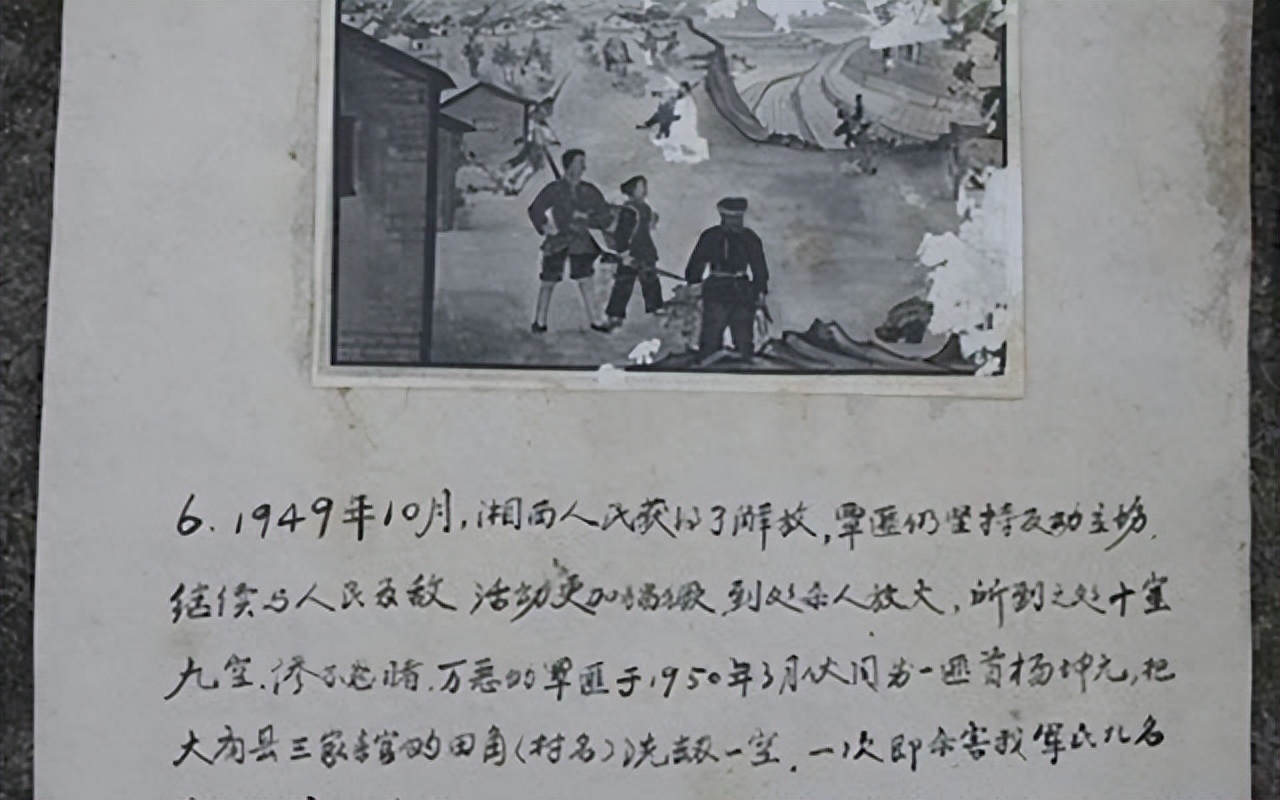 6. 1949年10月,湘南人民获得了解放,覃匪仍坚持反动立场.
继续与人民为敌 活动更加猖獗 到处杀人放火,所到之处十室
九空.惨不忍睹.万恶的覃匪于1950年3月伙同另一匪首杨坤元,把
大庸县三家馆的田角(村名)洗劫一空.一次即杀害我军民几名